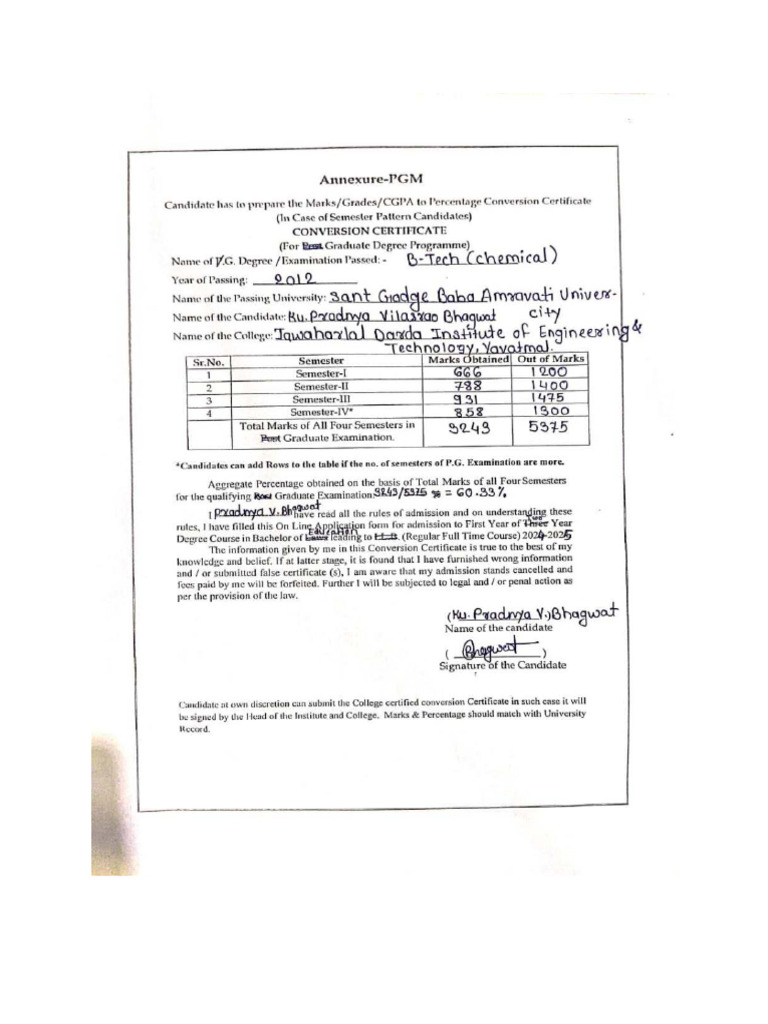 Annexure-PGM
Candidate has to prepare the Marks/Grades/CGPA to Percentage Conversion Certificate
(In Case of Semester Pattern Candidates)
CONVERSION CERTIFICATE
(For Graduate Degree Programme)
Name of P.G. Degree /Examination Passed: - B-Tech (chemical)
Year of Passing: 2012
Name of the Passing University: Sant Gadge Baba Amravati Univer-
city
Name of the Candidate: Ku. Pradnya Vilasrao Bhagwat
Name of the College: Jawaharlal Darda Institute of Engineering &
Technology, Yavatmal.
Sr.No. Semester Marks Obtained Out of Marks
1 Semester-I 666 1200
2 Semester-II 788 1400
3 Semester-III 931 1475
4 Semester-IV* 858 1300
Total Marks of All Four Semesters in 3243 5375
Post Graduate Examination.
*Candidates can add Rows to the table if the no. of semesters of P.G. Examination are more.
Aggregate Percentage obtained on the basis of Total Marks of all Four Semesters
for the qualifying Graduate Examination 3243/5375 % = 60.33%
I Pradnya V. Bhagwat have read all the rules of admission and on understanding these
rules, I have filled this On Line Application form for admission to First Year of Three two Year
Degree Course in Bachelor of Laws Education leading to (Regular Full Time Course) 2024-2025
The information given by me in this Conversion Certificate is true to the best of my
knowledge and belief. If at latter stage, it is found that I have furnished wrong information
and / or submitted false certificate (s), I am aware that my admission stands cancelled and
fees paid by me will be forfeited. Further I will be subjected to legal and / or penal action as
per the provision of the law.
(Ku. Pradnya V.) Bhagwat
Name of the candidate
( Bhagwat )
Signature of the Candidate
Candidate at own discretion can submit the College certified conversion Certificate in such case it will
be signed by the Head of the Institute and College. Marks & Percentage should match with University
Record.